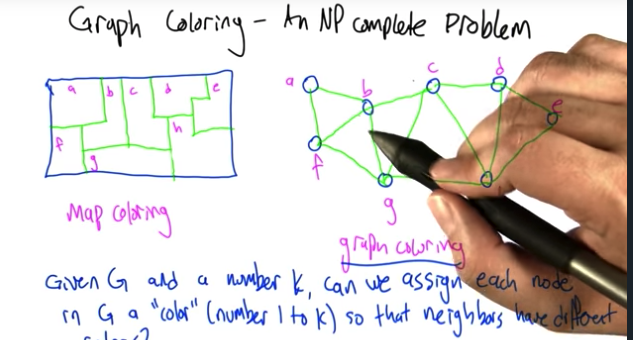 Graph Coloring - An NP complete Problem
a b c d e
f g h
a b c d e
f
g
Map coloring
graph coloring
Given G and a number k, can we assign each node
in G a "color" (number 1 to k) so that neighbors have different